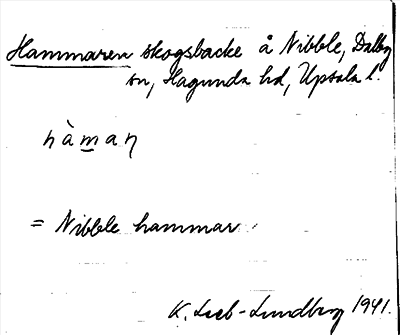 Hammaren skogsbacke å Nibble, Dalby
sn, Hagunda hd, Upsala l.
hàman
= Nibble hammar
K. Leeb-Lundberg 1941.